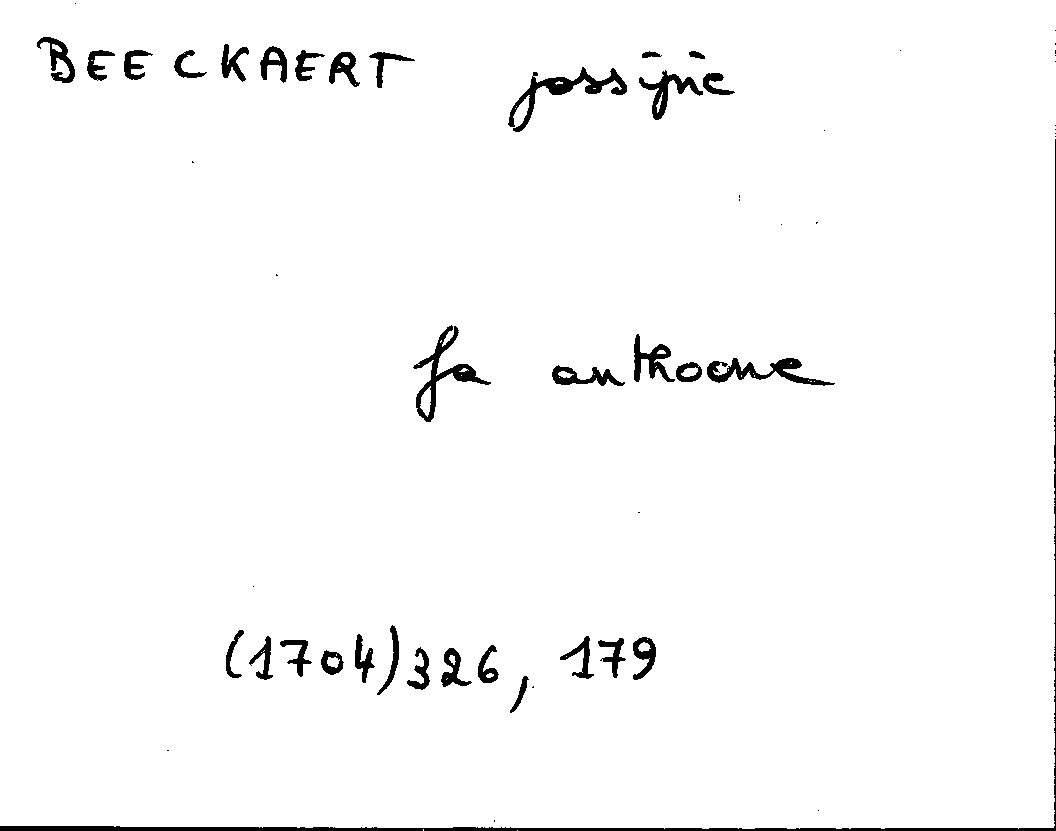 BEECKAERT jossijne
fa anthoone
(1704) 326, 179